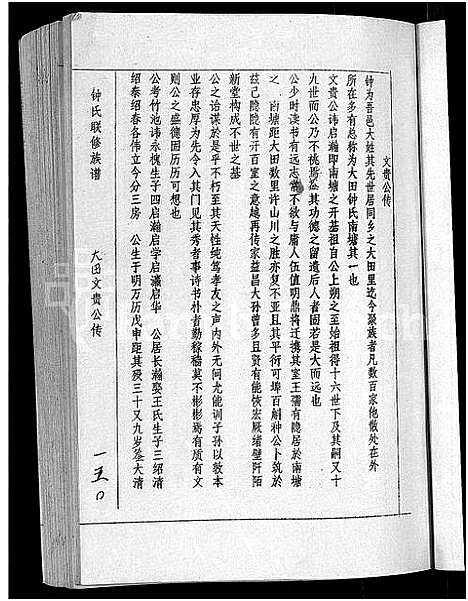 文贵公传
钟为吾邑大姓其先世居同乡之大田里迄今聚族者凡数百家他散处在外
所在多有总称为大田钟氏南塘其一也
文贵公讳启瀚即南塘之开基祖自公上朔之至始祖得十六世下及其嗣又十
九世而公乃不桃焉盖其功德之留遗后人者固若是大而远也
公少时读书有远志常不欲与庸人伍值明鼎将迁携其室王孺有隐居於南塘
之南塘距大田数里许山川之胜亦复不亚且其平衍可埠百斛种公卜筑於
兹己隐隐有开百室之意越再传家益昌大孙曾多且贤有能恢宏厥绪壁阡陌
新堂构成不世之基
公之诒谋於是乎不朽至其天性纯笃孝友之声内外无间尤能训子孙以敦本
业存忠厚为先令入其门见其秀者事诗书朴者勤稼穑莫不彬彬焉有质有文
则公之盛德固历历可想也
公考竹池讳永槐生子四启瀚启学启瀛启华 公居长瀚娶王氏生子三绍清
绍泰绍春各伟立今分三房 公生于明万历戊申距其殁三十又九岁盖大清
钟氏联修族谱
大田文贵公传
一五0